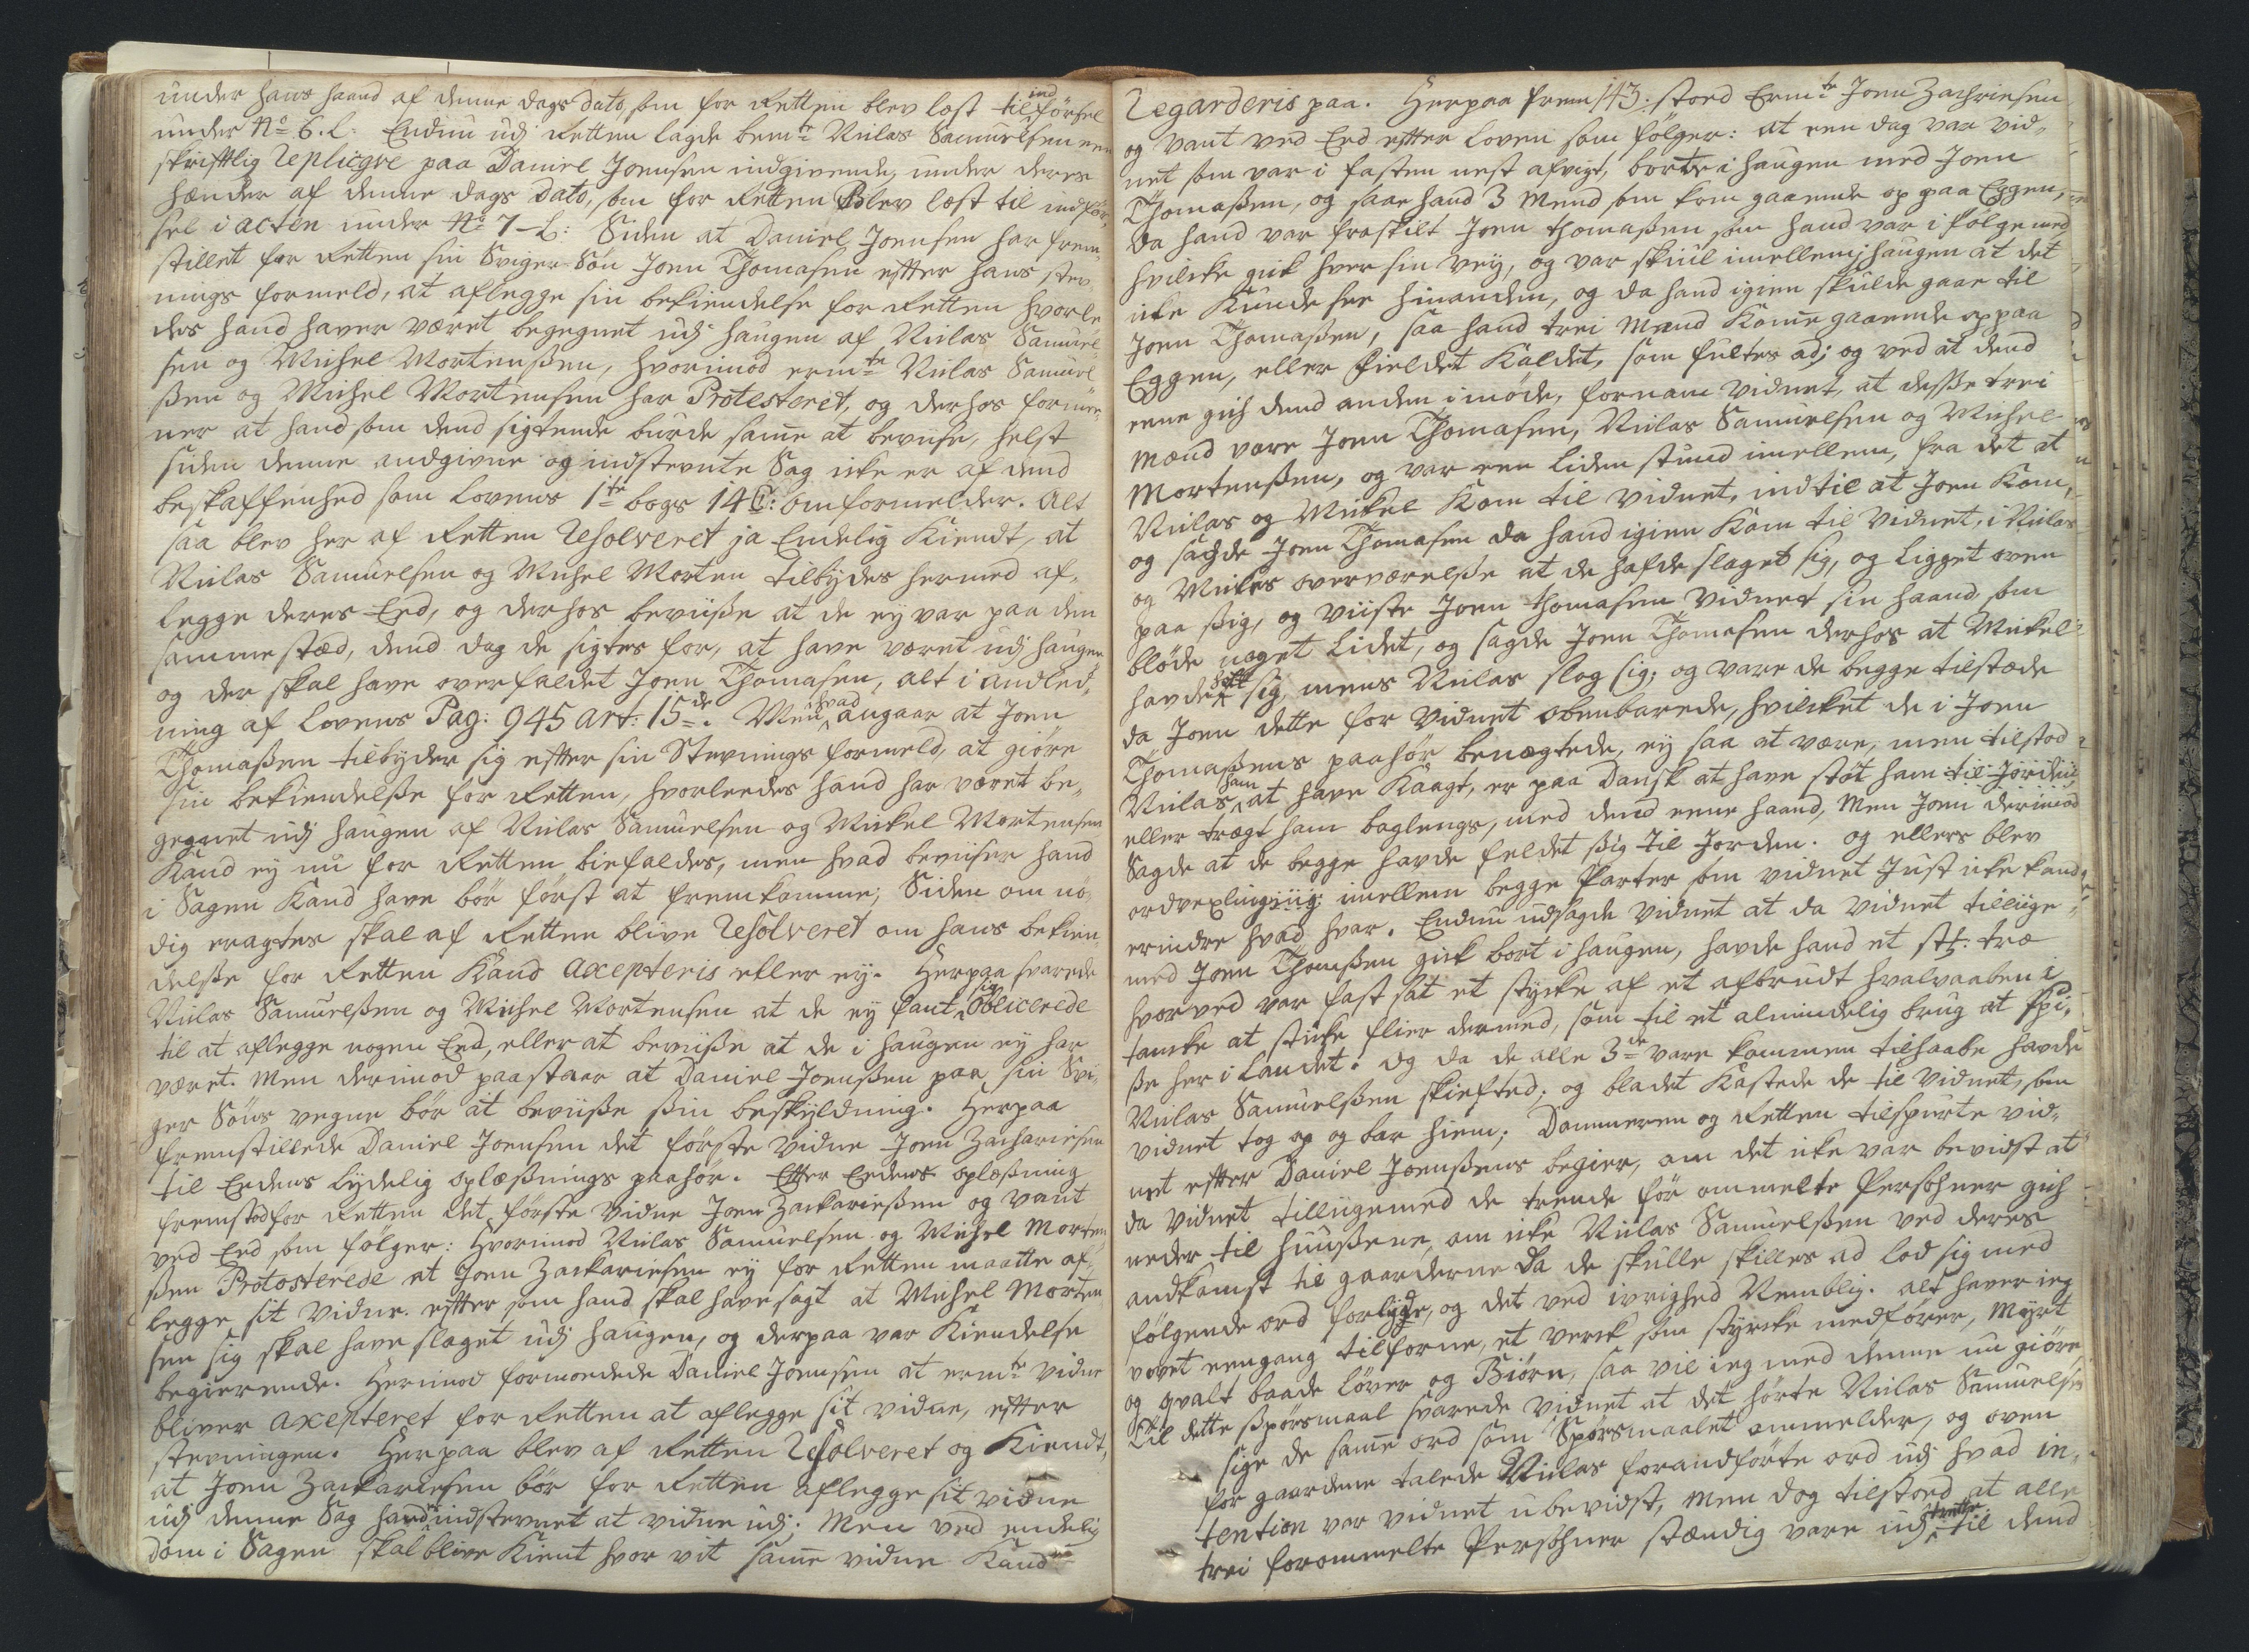 under hans haand af denne dags dato, som for Retten blev læst til indförsel
under No 6. L: Endnu udj Retten lagde bemte Niclas Samuelsen een
skrifftlig Replicqve paa Daniel Joensen indgivende, under deres
hænder af denne dags dato, som for Retten Blev læst til indför,,
sel i acten under No 7 - L: Siden at Daniel Joensen har frem,,
stillet for Retten sin Sviger-Sön Joen Thomasen effter hans stev,,
nings formeld, at aflegge sin bekiendelse for Retten hvorle
des hand haver været begegnet udj haugen af Niclas Samuel,,
sen og Michel Mortenßen, hvorimod ermte Niclas Samuel
ßen og Michel Mortensen har Protesteret, og derhos forme,,
ner at hand som dend sigtende burde same at beviise, helst
siden denne andgivne og indstevnte Sag icke er af dend
beskaffenhed som Lovens 1te bogs 14 C: omformelder. Alt
saa blev her af Retten Resolveret ja Endelig Kiendt, at
Niclas Samuelsen og Michel Morten tilbydes hermed af,,
legge deres Eed, og derhos beviiße at de ey var paa den
samme stæd, dend dag de sigtes for, at have været udj haugen
og der skal have overfaldet Joen Thomasen, alt i andled,,
ning af Lovens Pag: 945 art: 15de. Men hvad angaar at Joen
Thomaßen tilbyder sig effter sin Stevnings formeld, at giöre
sin bekiendelße for Retten, hvorleedes hand har været be,,
gegnet udj haugen af Niclas Samuelsen og Mickel Mortensen
Kand ey nu for Retten biefaldes, men hvad beviiser hand
i Sagen Kand have bör först at fremkomme, Siden om nö,,
dig eragtes skal af Retten blive Resolveret om hans bekien,,
delße for Retten Kand Axepteris eller ey. Herpaa svarede
Niclas Samuelßen og Michel Mortensen at de ey fant sig oblicerede
til at aflegge nogen Eed, eller at beviiße at de i haugen ey har
været. Men derimod paastaar at Daniel Joenßen paa sin Svi,,
ger Söns vegne bör at beviiße ßin beskyldning. Herpaa
fremstillede Daniel Joensen det förste vidne Joen Zachariesen
til Eedens lydelig oplæßnings paahör. Effter Eedens oplæßning
fremstod for Retten det förste Vidne Joen Zackarießen og vant
ved Eed som fölger: Hvorimod Niclas Samuelsen og Michel Morten
ßen Protosterede at Joen Zackariesen ey for Retten maatte af,,
legge sit Vidne. effter som hand skal have sagt at Michel Morten
sen sig skal have slaget udj haugen, og derpaa var Kiendelse
begierende. Herimod formoedede Daniel Joensen at ermte vidne
bliver axepteret for Retten at aflegge sit vidne, effter
stevningen. Herpaa blev af Retten Resolveret og Kiendt,
at Joen Zackariesen bör for Retten aflegge sit vidne
udj denne Sag hand indstevnet at vidne udj; Men ved endelig
dom i Sagen skal blive Kient hvor vit same vidne Kand
Regarderis paa. Herpaa frem 143: stoed Ermte Joen Zachriesen
og vant ved Eed effter Loven som fölger: at een dag var vid,,
net som var i fasten nest afvigt, borte i haugen med Joen
Thomaßen, og saae hand 3 Mend som kom gaaende op paa Eggen,
da hand var fraskilt Joen Thomaßen som hand var i fölge med
hvilcke gick hver sin vey, og var skiul imellem i haugen at det
icke Kunde see hinanden, og da hand igien skulde gaae til
Joen Thomaßen, saa hand trei Mænd Kome gaaende op paa
Eggen, eller Fieldet Kaldet, som fultes ad; og ved at dend
eene gich dend anden i möde, fornam vidnet, at deße trei
Mænd vare Joen Thomasen, Niclas Samuelsen og Michel
Mortenßen, og var een liden stund imellem, fra det at
Niclas og Mickel Kom til vidnet, indtil at Joen Kom,
og sagde Joen Thomasen da hand igien Kom til Vidnet, i Niclas
og Mickes overværelße at de hafde slaget sig, og ligget oven
paa ßig, og viiste Joen Thomasen Vidnet sin haand som
blöde noget lidet, og sagde Joen Thomasen derhos at Mickel
havde holt sig mens Niclas slog sig; og vare de begge tilstæde
da Joen dette for Vidnet obenbarede, hvilcket de i Joen
Thomaßens paahör benægtede, ey saa at være, men tilstod
Niclas ham at have Kaagt, er paa Dansk at have stöt ham til Jorden
eller trægt ham baglengs, med dend eene haand, Men Joen derimod
Sagde at de begge havde feldet ßig til Jorden. og ellers blev
ordvexling imellem begge Parter som vidnet Just icke kand
erindre hvad hvar. Endnu udsagde Vidnet at da vidnet tillige
med Joen Thomßen gick bort i haugen, havde hand et stk: træ
hvorved var fast sat et stycke af et afbrudt hvalvaaben i
tancke at sticke flier dermed, som til et almindelig brug at spi,,
ße her i Landet. Og da de alle 3de vare kommen tilhaabe havde
Niclas Samuelßen skiefted; og bladet Kastede de til Vidnet, som
vidnet tog op og bar hiem; Dommeren og Retten tilspurte vid,,
net effter Daniel Joenßens begier, om det icke var bevidst at
da vidnet tilligemed de trende för ommelte Persohner gich
neder til huußene, om icke Niclas Samuelßen ved deres
andkomst til gaarderne da de skulle skilles ad lod sig med
fölgende ord forlyde, og det ved ivrighed Nemblig. alt haver ieg
vovet eengang tilforne, et verck som styrcke medförer, Myrt
og qvalt baade löver og Biörn, saa vil ieg med denne nu giöre
Til dette ßpörsmaal svarede vidnet at det hörte Niclas Samuelsen
sige de same ord som Spörsmaalet ommelder, og oven
for gaardene talede Niclas forandförte ord udj hvad in,,
tention var vidnet ubevidst, Men dog tilstoed at alle
trei forommelte Persohner stændig vare udj trette til dend